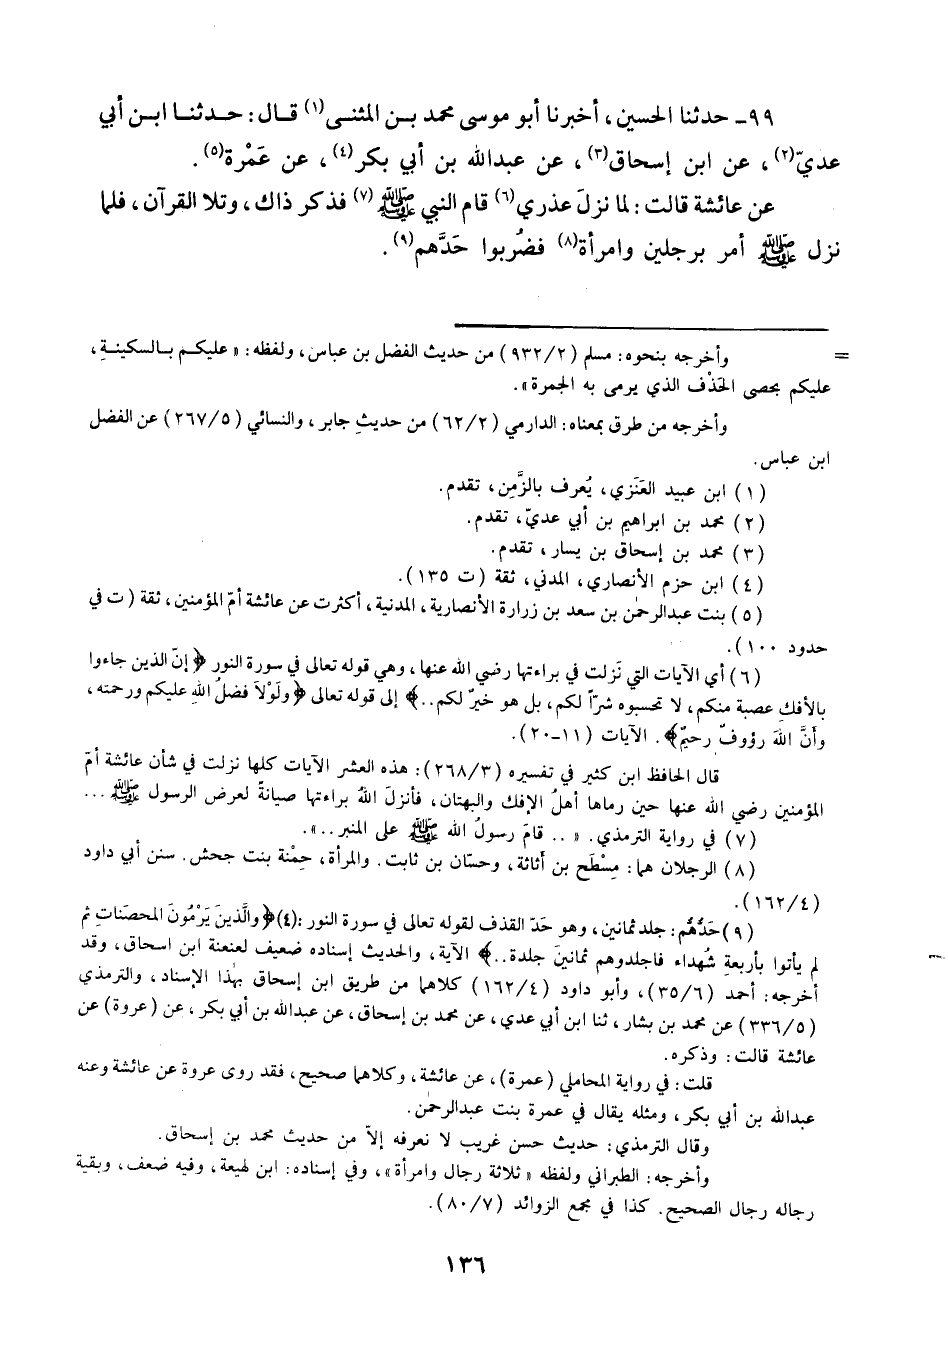 ٩٩ـ حدثنا الحسين، أخبرنا أبو موسى محمد بن المثنى(١) قال: حدثنا ابن أبي
عديّ(٢)، عن ابن إسحاق(٣)، عن عبدالله بن أبي بكر(٤)، عن عَمْرة(٥).
عن عائشة قالت: لما نزلَ عذري(٦) قام النبي ﷺ(٧) فذكر ذاك، وتلا القرآن، فلما
نزل ﷺ أمر برجلين وامرأة(٨) فضُربوا حَدَّهم(٩).
= وأخرجه بنحوه: مسلم (٩٣٢/٢) من حديث الفضل بن عباس، ولفظه: «عليكم بالسكينةِ،
عليكم بحصى الخَذْف الذي يرمى به الجمرة».
وأخرجه من طرق بمعناه: الدارمي (٦٢/٢) من حديثِ جابر، والنسائي (٢٦٧/٥) عن الفضل
ابن عباس.
(١) ابن عبيد العَنَزي، يُعرف بالزَّمِن، تقدم.
(٢) محمد بن ابراهيم بن أبي عديّ، تقدم.
(٣) محمد بن إسحاق بن يسار، تقدم.
(٤) ابن حزم الأنصاري، المدني، ثقة (ت ١٣٥).
(٥) بنت عبدالرحمٰن بن سعد بن زرارة الأنصارية، المدنية، أكثرت عن عائشة أمّ المؤمنين، ثقة (ت في
حدود ١٠٠).
(٦) أي الآيات التي نَزلت في براءتها رضي الله عنها، وهي قوله تعالى في سورة النور ﴿إنّ الذين جاءوا
بالأفكِ عصبة منكم، لا تحسبوه شرّاً لكم، بل هو خيرٌ لكم..﴾ إلى قوله تعالى ﴿ولَوْلاَ فضلُ اللهِ عليكم ورحمته،
وأنَّ اللهَ رؤوفٌ رحيمٌ﴾. الآيات (١١-٢٠).
قال الحافظ ابن كثير في تفسيره (٢٦٨/٣): هذه العشر الآيات كلها نزلت في شأن عائشة أمّ
المؤمنين رضي الله عنها حين رماها أهلُ الإفك والبهتان، فأنزلَ اللهُ براءتها صيانةً لعرض الرسول ﷺ ...
(٧) في رواية الترمذي. «.. قامَ رسولُ الله ﷺ على المنبر..».
(٨) الرجلان هما: مِسْطَح بن أثاثة، وحسّان بن ثابت. والمرأة، حِمْنة بنت جحش. سنن أبي داود
(١٦٢/٤).
(٩) حَدُّهُم: جلد ثمانين، وهو حَدّ القذف لقوله تعالى في سورة النور: (٤)﴿والَّذينَ يَرْمُونَ المحصنَاتِ ثم
لم يأتوا بأربعةِ شُهداء فاجلدوهم ثمانينَ جلدة..﴾ الآية، والحديث إسناده ضعيف لعنعنة ابن اسحاق، وقد
أخرجه: أحمد (٣٥/٦)، وأبو داود (١٦٢/٤) كلاهما من طريق ابن إسحاق بهٰذا الإسناد، والترمذي
(٣٣٦/٥) عن محمد بن بشار، ثنا ابن أبي عدي، عن محمد بن إسحاق، عن عبدالله بن أبي بكر، عن (عروة) عن
عائشة قالت: وذكره.
قلت: في رواية المحاملي (عمرة)، عن عائشة، وكلاهما صحيح، فقد روى عروة عن عائشة وعنه
عبدالله بن أبي بكر، ومثله يقال في عمرة بنت عبدالرحمٰن.
وقال الترمذي: حديث حسن غريب لا نعرفه إلاّ من حديث محمد بن إسحاق.
وأخرجه: الطبراني ولفظه «ثلاثة رجال وامرأة»، وفي إسناده: ابن لهيعة، وفيه ضعف، وبقية
رجاله رجال الصحيح. كذا في مجمع الزوائد (٨٠/٧).
١٣٦